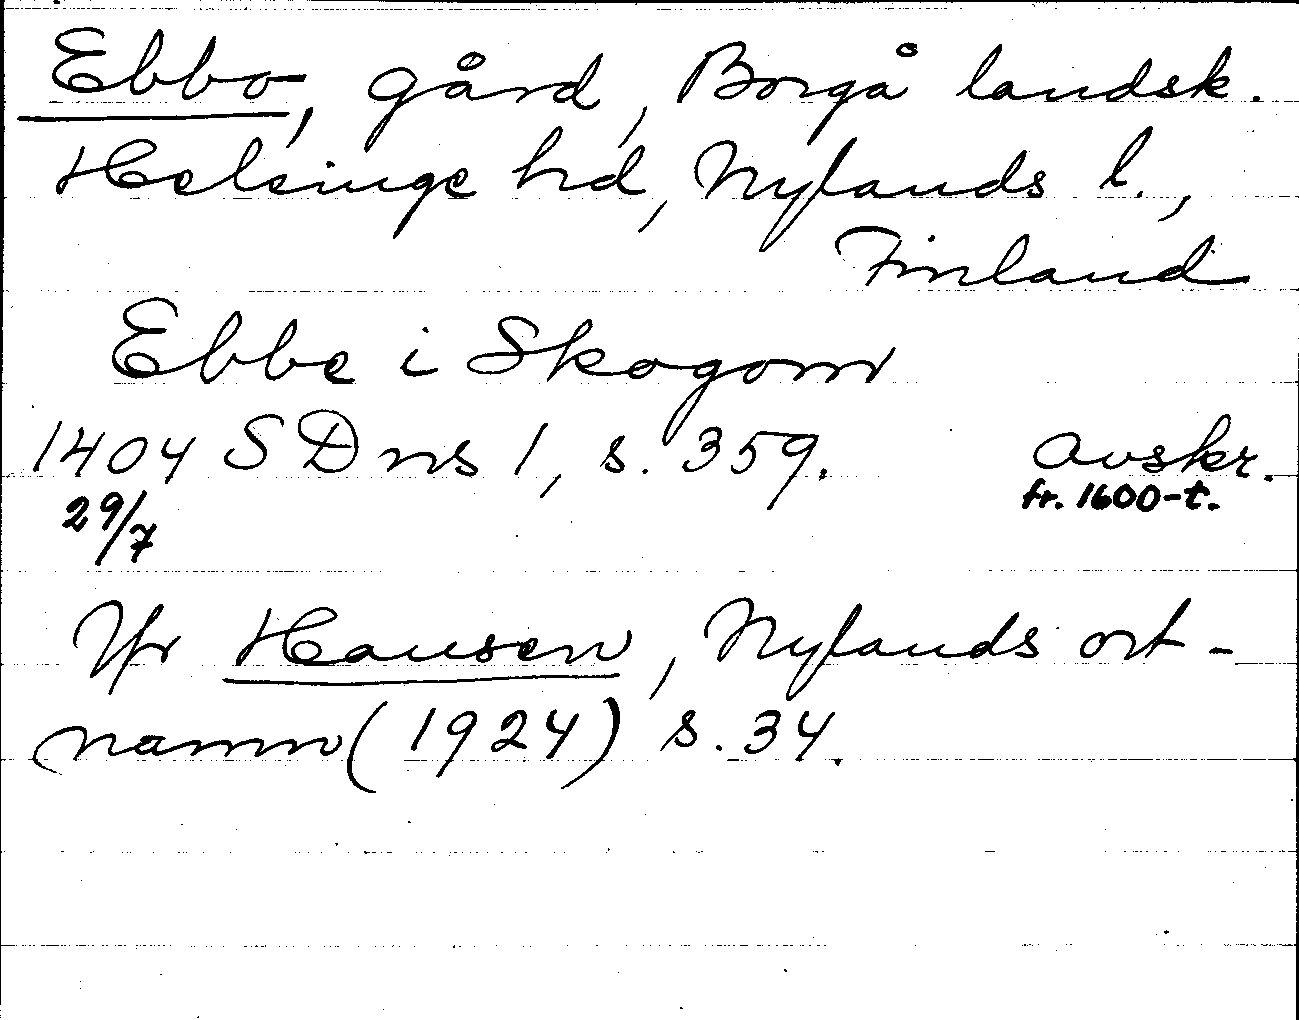 Ebbo, gård, Borgå landsk.
Helsinge hd, Nylands l.,
Finland
Ebbe i Skogom
1404 SDns 1, s. 359. avskr.
29/7 fr. 1600-t.
Jfr Hausen, Nylands ort-
namn (1924) s. 34.